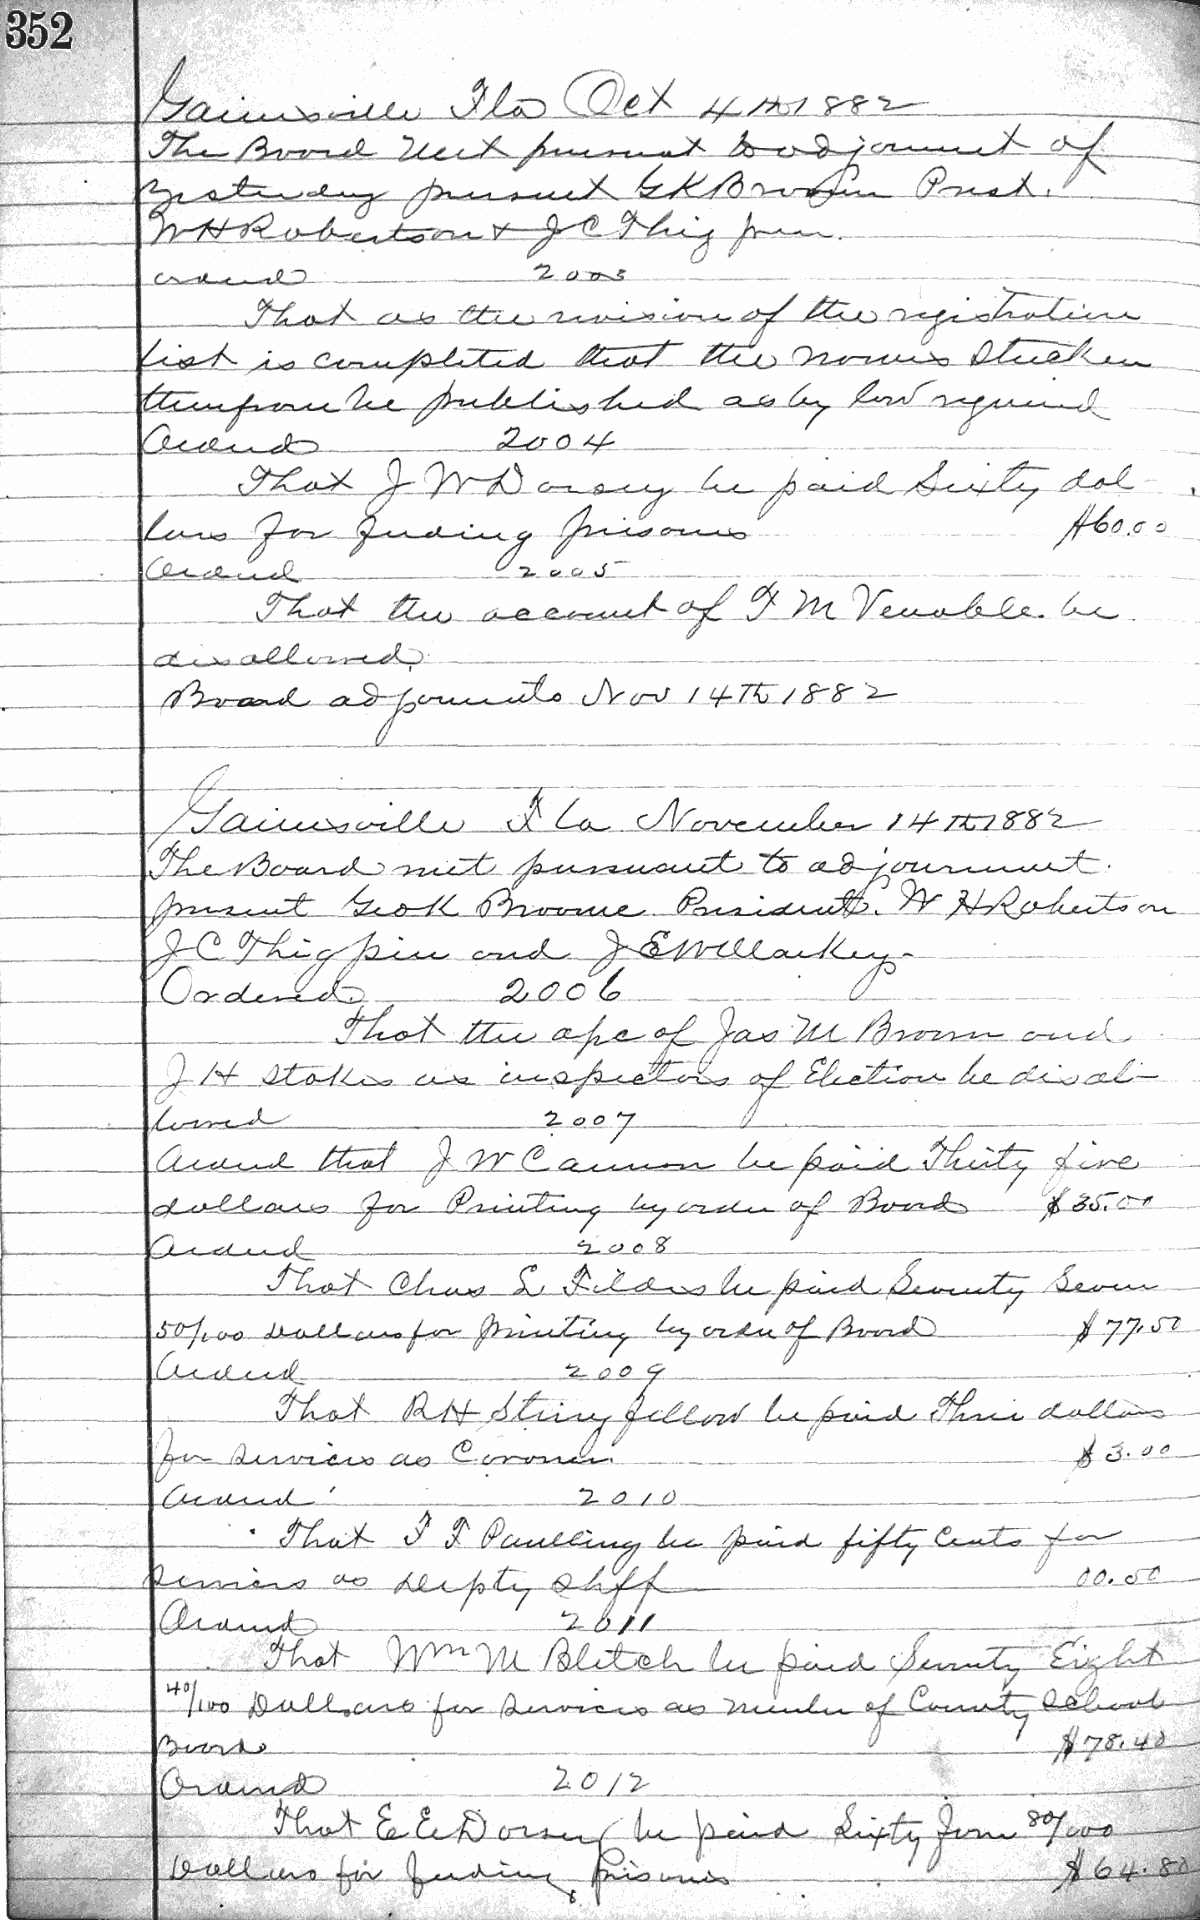 352
Gainesville Fla Oct 4th 1882
The Board Met pursuant to adjournment of
Yesterday present G K Broome Prest.
W H Robertson & J C Thigpen.
Ordered 2003
That as the revision of the registration
list is completed that the names stricken
therefrom be published as by law required
Ordered 2004
That J W Dorsey be paid Sixty dol
lars for feeding prisoners $60.00
Ordered 2005
That the account of F M Venable be
disallowed.
Board adjourned to Nov 14th 1882
Gainesville Fla November 14th 1882
The Board met pursuant to adjournment.
present Geo K Broome President. W H Robertson
J C Thigpin and J E Willarkey.
Ordered 2006
That the apc of Jas M Brown and
J H Stokes as inspectors of Election be disal-
lowed 2007
Ordered that J W Cannon be paid Thirty five
dollars for Printing by order of Board $35.00
Ordered 2008
That Chas L Fildes be paid Seventy Seven
50/100 Dollars for printing by order of Board $77.50
Ordered 2009
That R H Stringfellow be paid Three dollars
for services as Coroner. $3.00
Ordered 2010
That F F Paulling be paid fifty Cents for
services as Depty Shff 00.50
Ordered 2011
That Wm M Blitch be paid Seventy Eight
40/100 Dollars for services as member of County School
Board $78.40
Ordered 2012
That E E Dorsey be paid Sixty four 80/100
Dollars for feeding prisoners $64.80